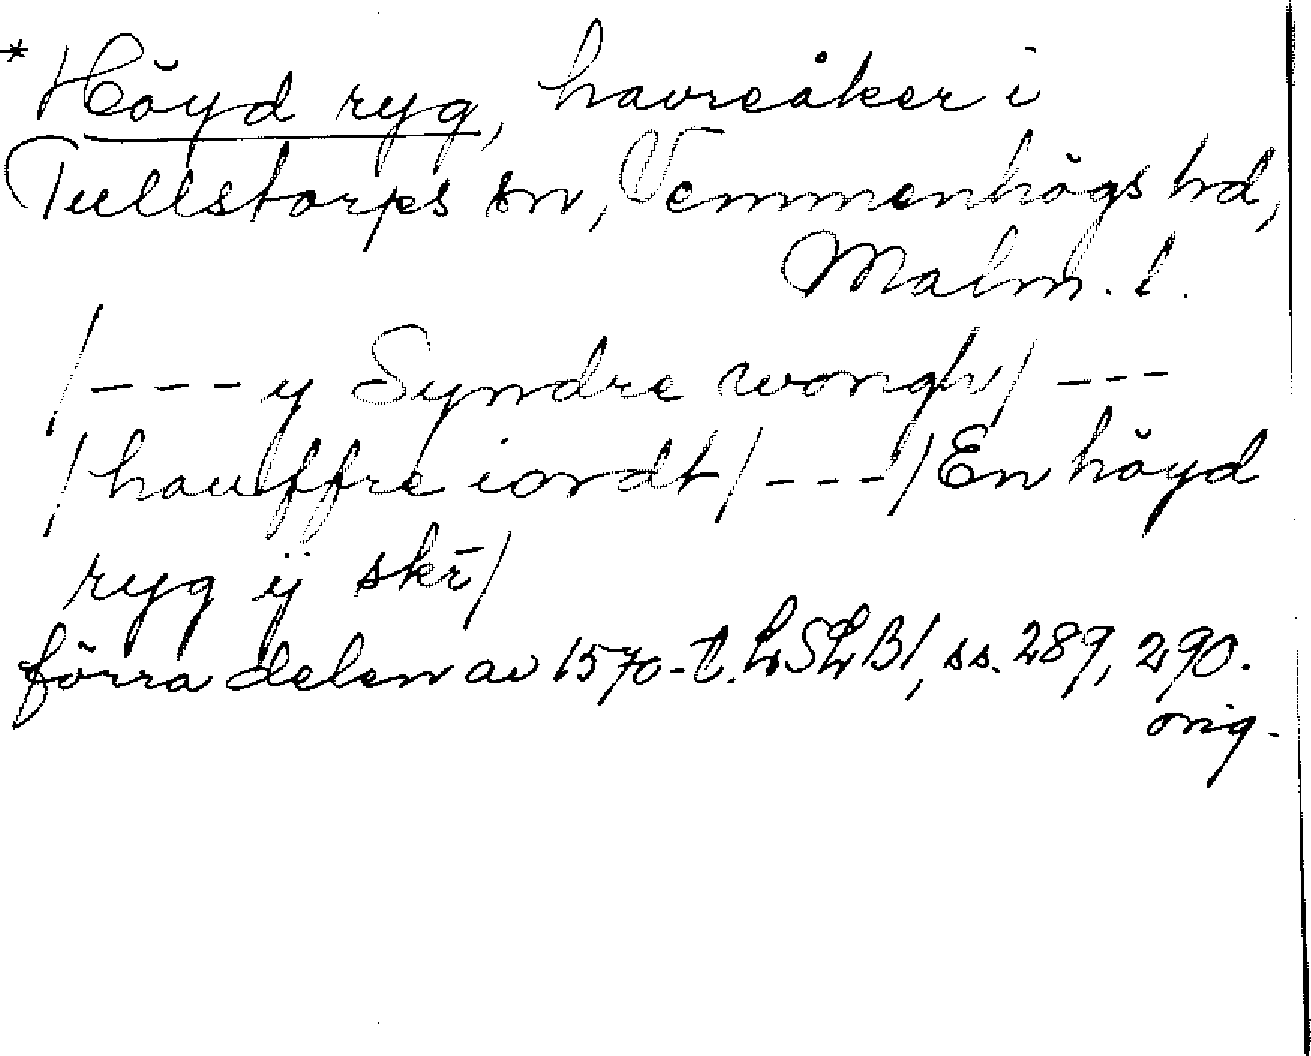 * Höyd ryg, havreåker i
Tullstorps sn, Vemmenhögs hd,
Malm. l.
/--- y Syndre wongh/ ---
/hauffre iordt/ --- /En höyd
ryg ÿ skr̄/
förra delen av 1570-t. LSLB1, ss. 289, 290.
orig.